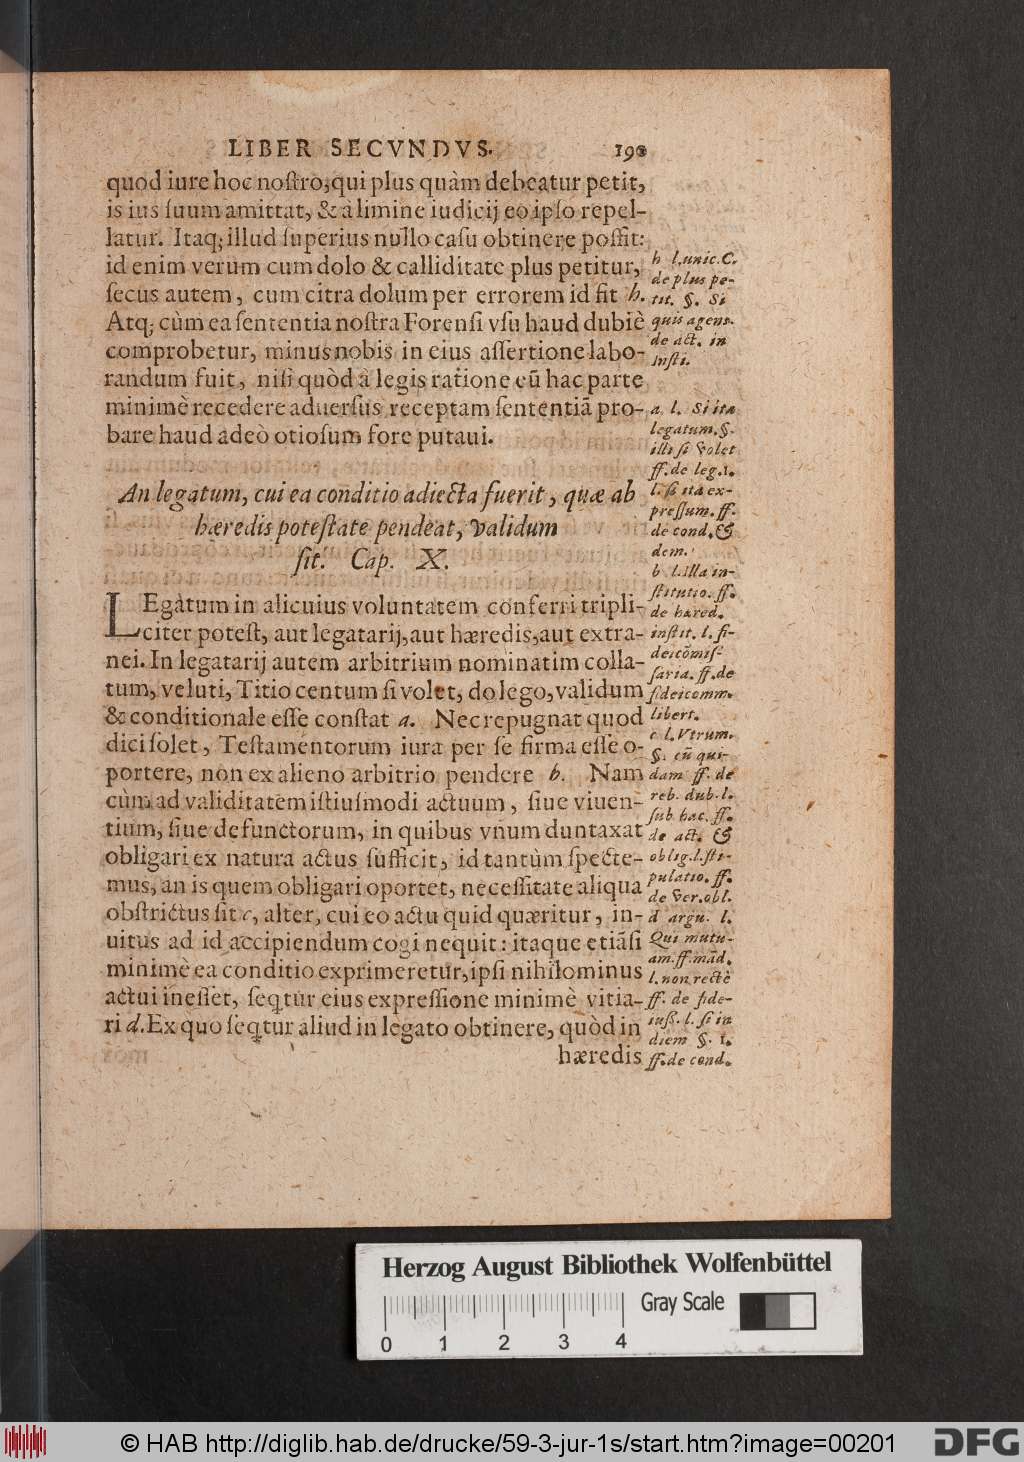 LIBER SECVNDVS.
quod iure hoc noſtro, qui plus quàm debeatur petit,
is ius ſuum amittat, & à limine iudicij eo ipſo repel-
latur. Itaq; illud ſuperius nullo caſu obtinere poſſit:
id enim verum cum dolo & calliditate plus petitur,
ſecus autem, cum citra dolum per errorem id fit h.
Atq; cùm ea ſententia noſtra Forenſi vſu haud dubiè
comprobetur, minus nobis in eius aſſertione labo-
randum fuit, niſi quòd à legis ratione eũ hac parte
minimè recedere aduerſus receptam ſententiã pro-
bare haud adeò otioſum fore putaui.
An legatum, cui ea conditio adiecta fuerit, quæ ab
hæredis poteſtate pendeat, validum
ſit. Cap. X.
LEgatum in alicuius voluntatem conferri tripli-
citer poteſt, aut legatarij, aut hæredis, aut extra-
nei. In legatarij autem arbitrium nominatim colla-
tum, veluti, Titio centum ſi volet, do lego, validum
& conditionale eſſe conſtat a. Nec repugnat quod
dici ſolet, Teſtamentorum iura per ſe firma eſſe o-
portere, non ex alieno arbitrio pendere b. Nam
cùm ad validitatem iſtiuſmodi actuum, ſiue viuen-
tium, ſiue defunctorum, in quibus vnum duntaxat
obligari ex natura actus ſufficit, id tantùm ſpecte-
mus, an is quem obligari oportet, neceſſitate aliqua
obſtrictus ſit c, alter, cui eo actu quid quæritur, in-
uitus ad id accipiendum cogi nequit: itaque etiãſi
minimè ea conditio exprimeretur, ipſi nihilominus
actui ineſſet, ſeq̃tur eius expreſſione minimè vitia-
ri d. Ex quo ſeq̃tur aliud in legato obtinere, quòd in
hæredis
h l. unic. C.
de plus pe-
tit. §. Si
quis agens.
de act. in
Inſti.
a. l. Si ita
legatum. §.
illi ſi volet
ff. de leg. 1.
l. ſi ita ex-
preſſum. ff.
de cond. &
dem.
b l. Illa in-
ſtitutio. ff.
de hæred.
inſtit. l. fi-
deicõmiſ-
ſaria. ff. de
fideicomm.
libert.
c l. Vtrum.
§. cũ qui-
dam ff. de
reb. dub. l.
ſub hac. ff.
de act. &
oblig. l. ſti-
pulatio. ff.
de ver. obl.
d argu. l.
Qui mutu-
am. ff. mãd.
l. non rectè
ff. de fide-
iuſſ. l. ſi in
diem §. 1.
ff. de cond.
Herzog August Bibliothek Wolfenbüttel
Gray Scale
0 1 2 3 4
© HAB http://diglib.hab.de/drucke/59-3-jur-1s/start.htm?image=00201
DFG